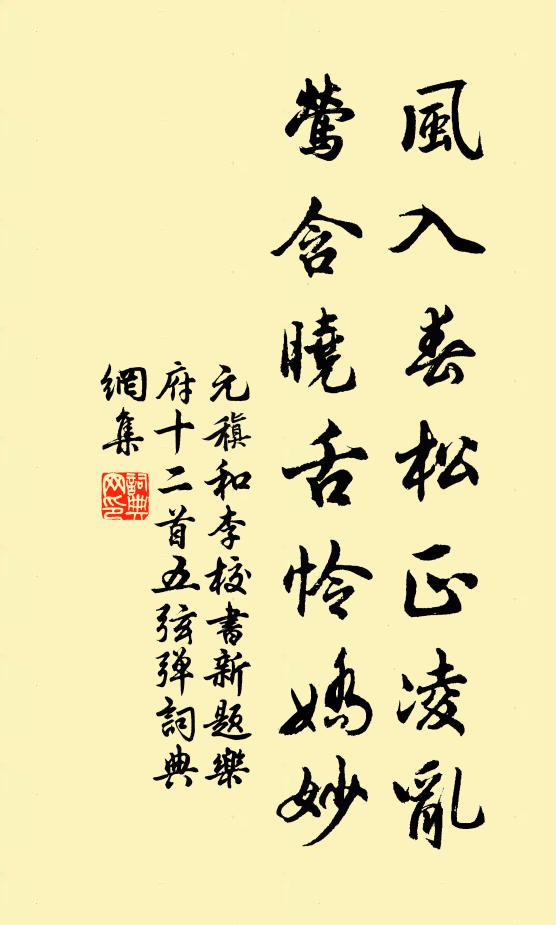 風入春松正凌亂
鶯含曉舌怜嬌妙
元稹和李校書新題樂
府十二首五弦弹詞典
網集
詞典網印